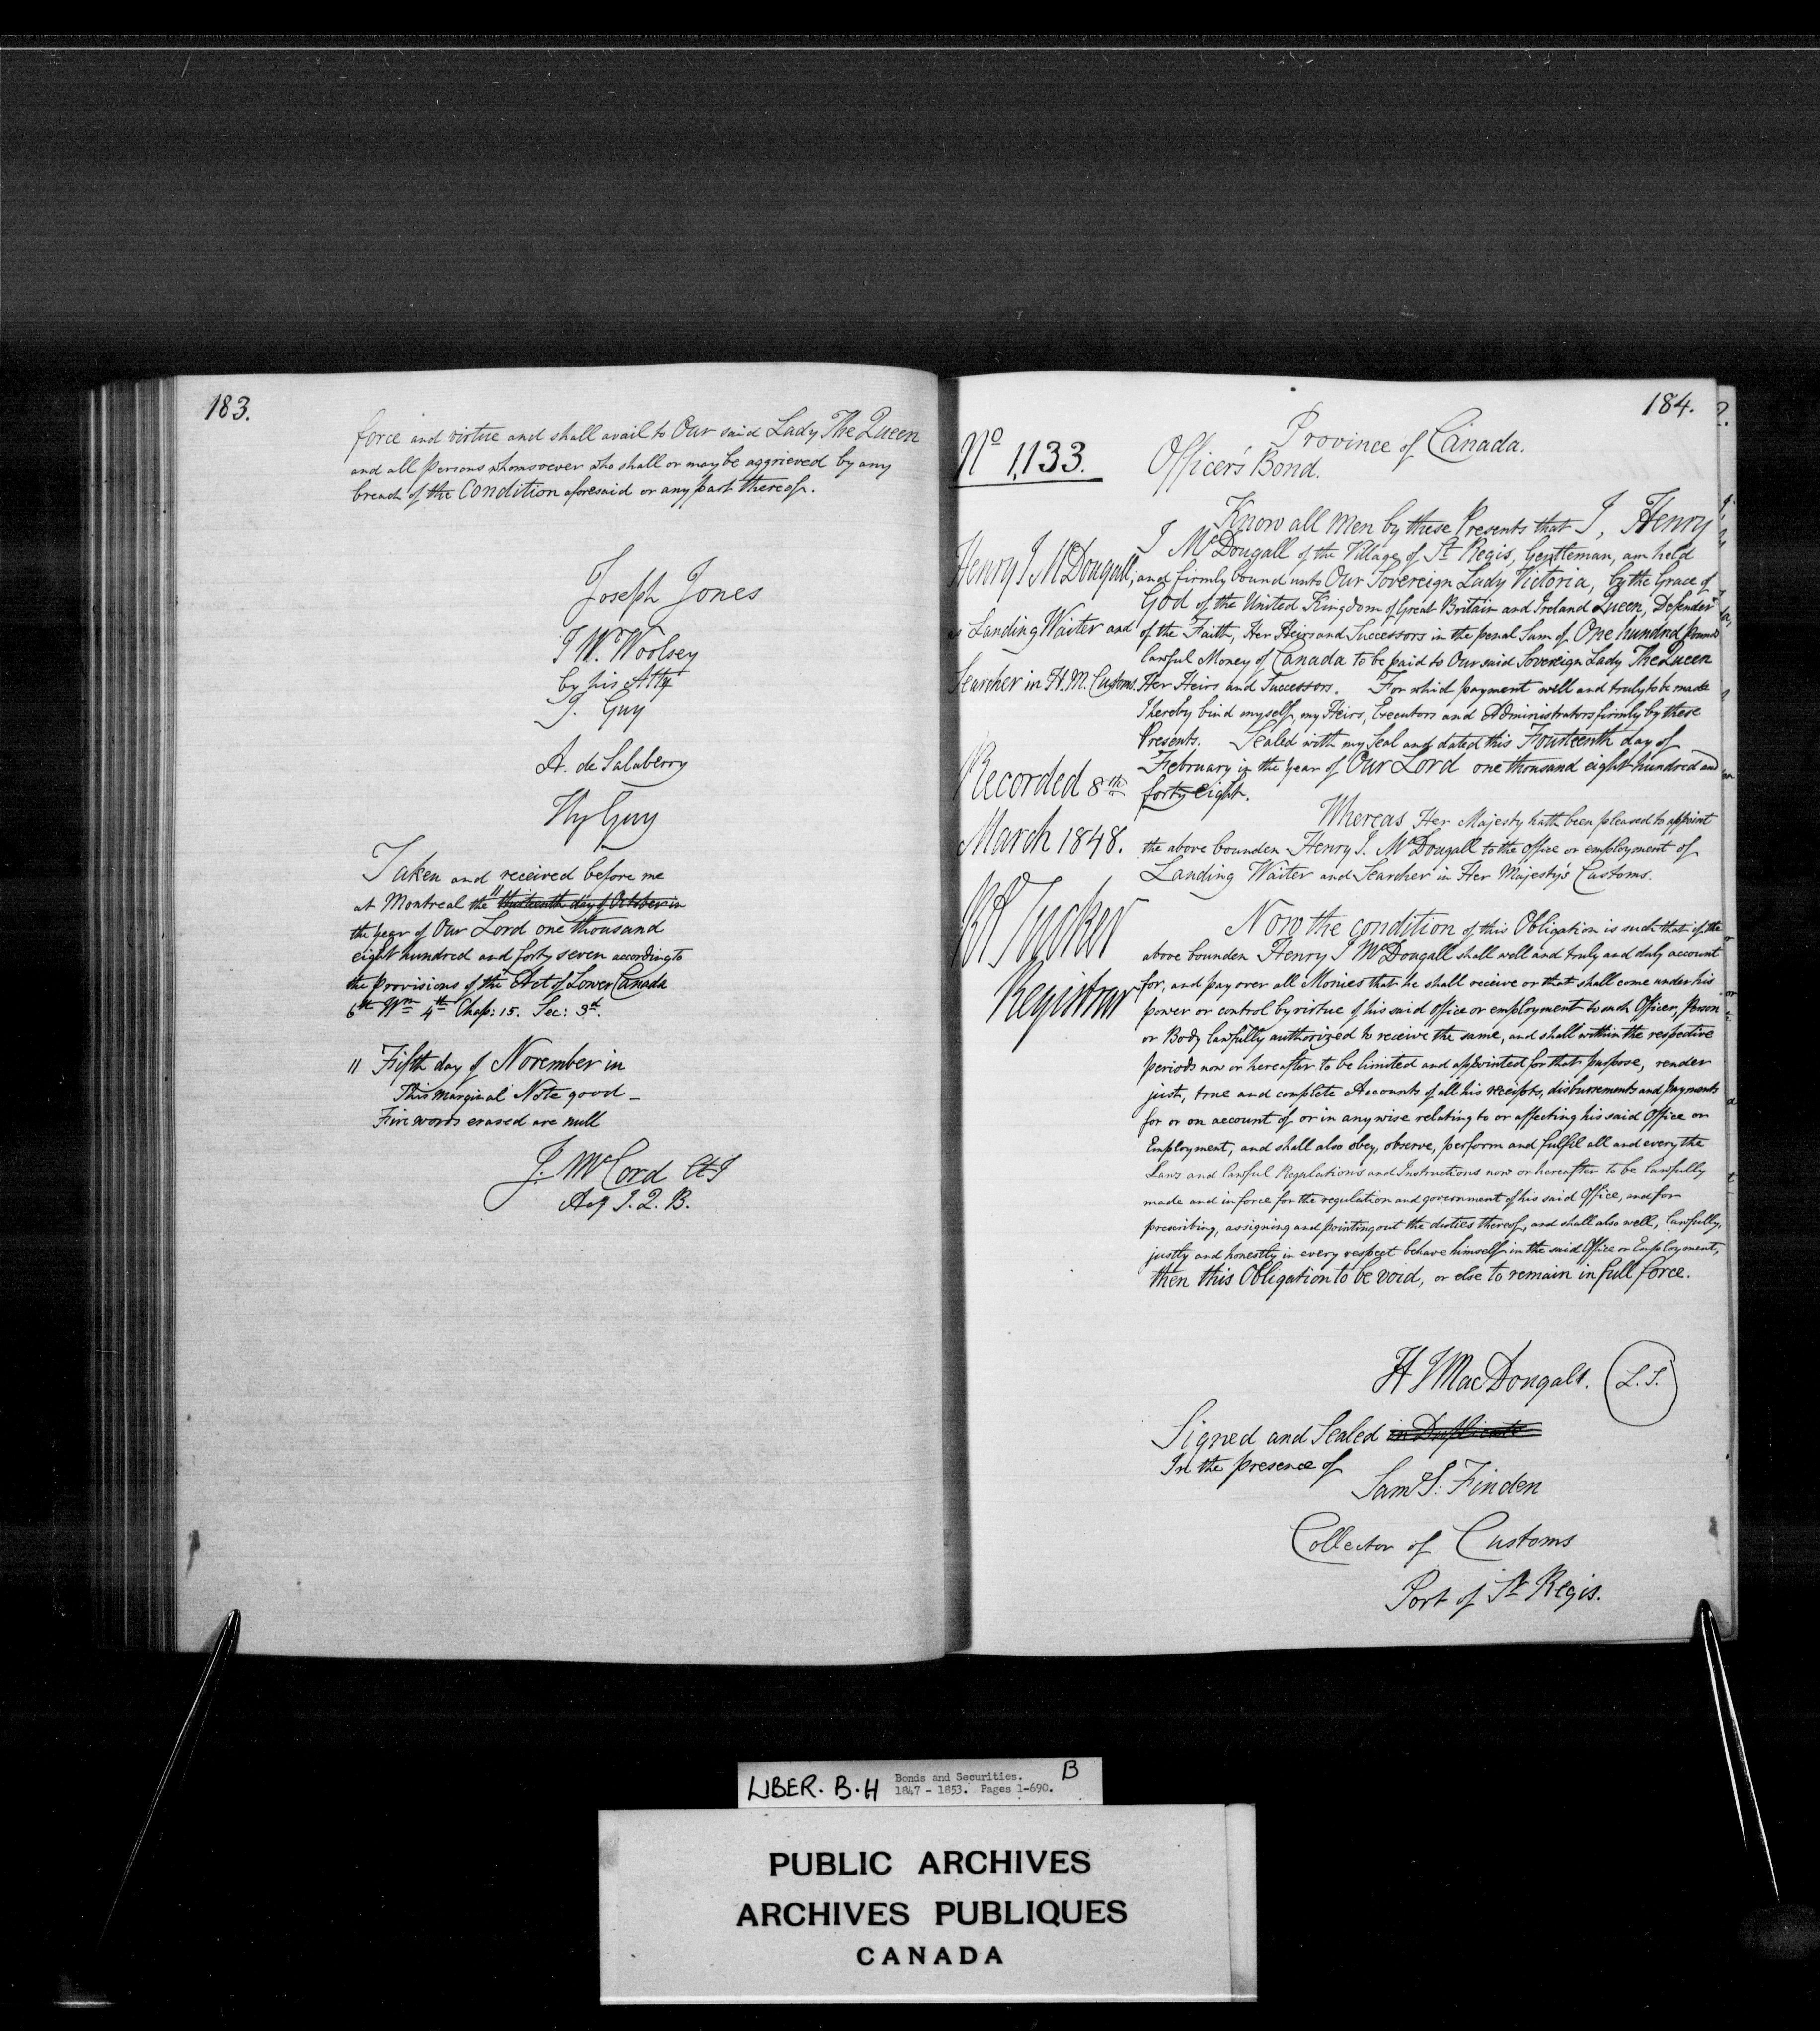 183.
force and virtue and shall avail to Our said Lady The Queen
and all persons whomsoever who shall or may be aggrieved by any
breach of the Condition aforesaid or any part thereof.
Joseph Jones
J W. Woolsey
by his Atty
J. Guy
A. de Salaberry
Hy Guy
Taken and received before me
at Montreal the " thirteenth day of October in
the year of Our Lord one thousand
eight hundred and forty seven according to
the provisions of the Act of Lower Canada
6th Wm 4th Chap: 15. Sec: 3d.
" Fifth day of November in
This marginal Note good _
Five words erased are null
J. McCord
J. Q. B.
184.
Province of Canada.
No 1,133.
Officer's Bond.
Know all Men by these Presents that I, Henry
J McDougall of the Village of St Regis, Gentleman, am held
Henry J McDougall,
and firmly bound unto Our Sovereign Lady Victoria, by the Grace of
God of the United Kingdom of Great Britain and Ireland Queen, Defender
as Landing Waiter and
of the Faith, Her Heirs and Successors in the penal Sum of One hundred pounds
lawful Money of Canada to be paid to Our said Sovereign Lady The Queen
Searcher in H. M. Customs.
Her Heirs and Successors. For which payment well and truly to be made
I hereby bind myself, my Heirs, Executors and Administrators firmly by these
Presents. Sealed with my Seal and dated this Fourteenth day of
February in the year of Our Lord one thousand eight hundred and
Recorded 8th
forty eight.
Whereas Her Majesty hath been pleased to appoint
March 1848.
the above bounden Henry J. McDougall to the office or employment of
Landing Waiter and Searcher in Her Majesty's Customs.
Tucker
Registrar
Now the condition of this Obligation is such that if the
above bounden Henry J McDougall shall well and truly and duly account
for, and pay over all Monies that he shall receive or that shall come under his
power or control by virtue of his said office or employment to such Officer, Person
or Body lawfully authorized to receive the same, and shall within the respective
periods now or hereafter to be limited and appointed for that purpose, render
just, true and complete Accounts of all his receipts, disbursements and payments
for or on account of or in any wise relating to or affecting his said Office or
Employment, and shall also obey, observe, perform and fulfil all and every the
Laws and lawful Regulations and Instructions now or hereafter to be lawfully
made and in force for the regulation and government of his said Office, and for
prescribing, assigning and pointing out the duties thereof, and shall also well, lawfully,
justly and honestly in every respect behave himself in the said Office or Employment,
then this Obligation to be void, or else to remain in full force.
H J MacDougall. L.S.
Signed and Sealed in Duplicate
In the presence of
Saml S. Finden
Collector of Customs
Port of St Regis.
LIBER. B.H Bonds and Securities. B
1847 - 1853. Pages 1-690.
PUBLIC ARCHIVES
ARCHIVES PUBLIQUES
CANADA